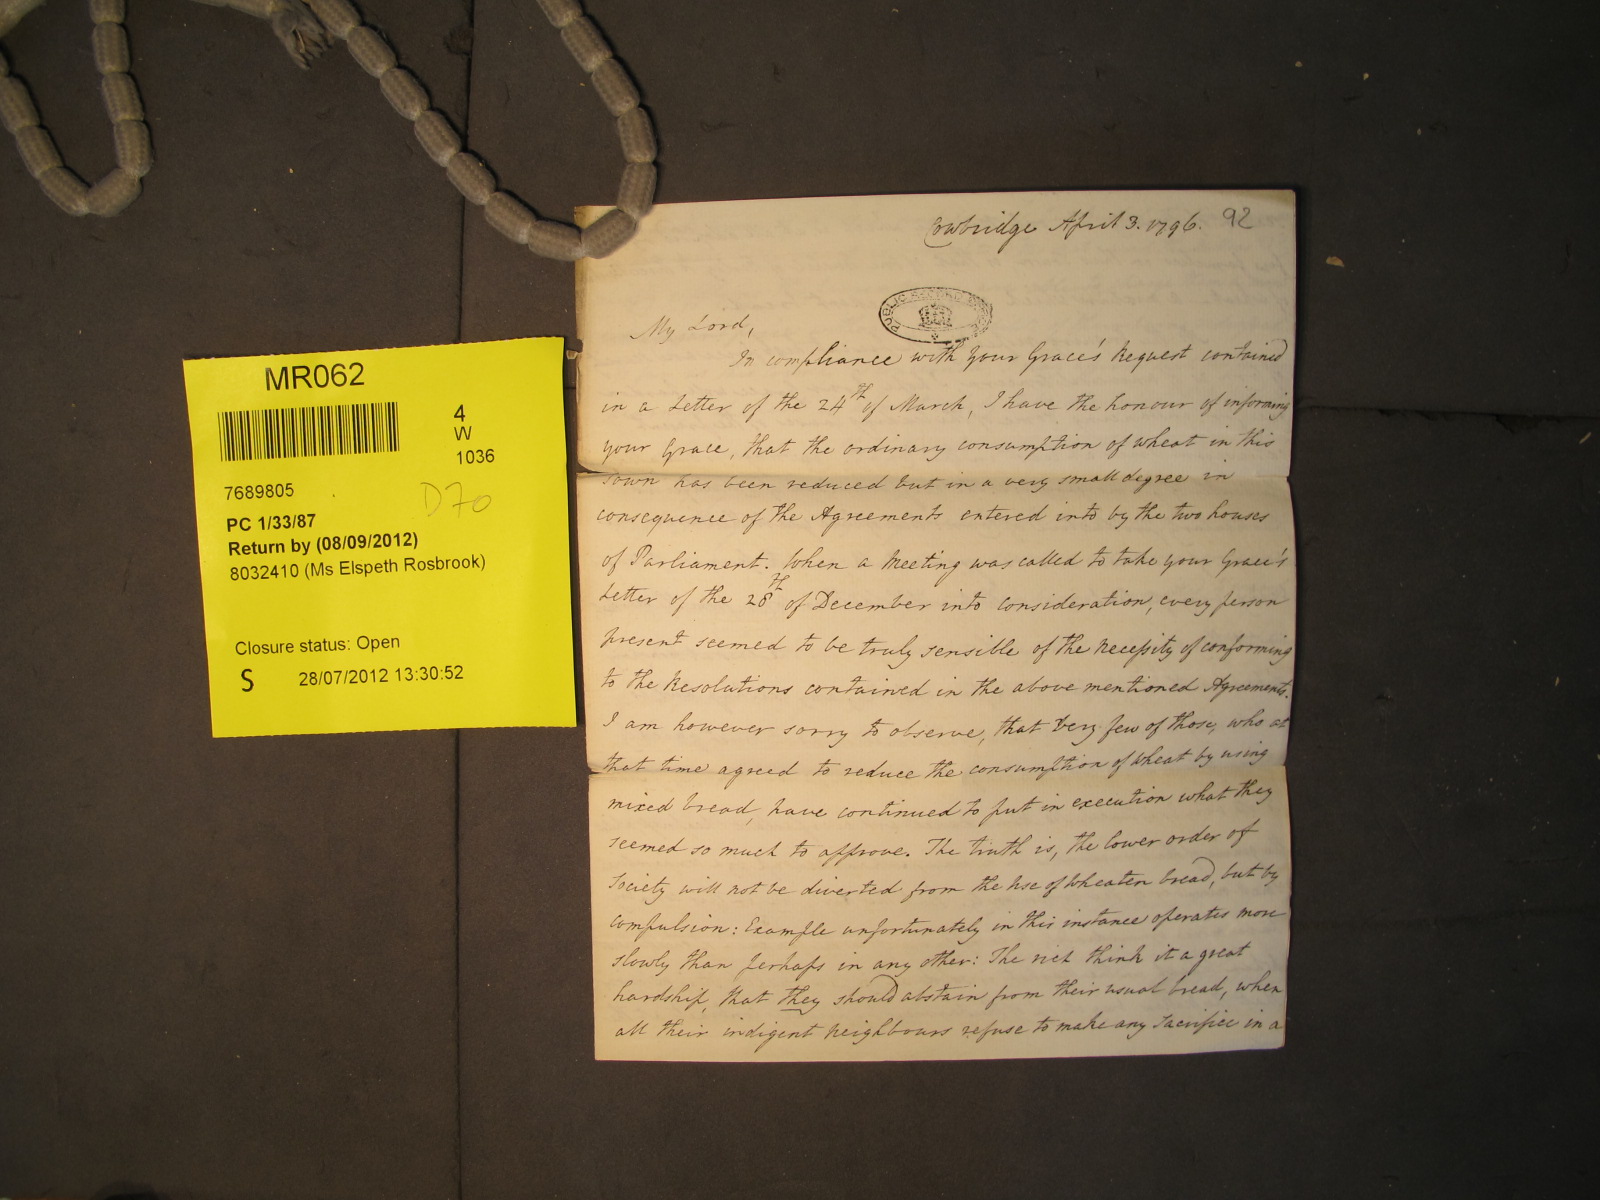 MR062
4
W
1036
7689805
D70
PC 1/33/87
Return by (08/09/2012)
8032410 (Ms Elspeth Rosbrook)
Closure status: Open
S 28/07/2012 13:30:52
Cowbridge April 3. 1796. 92
PUBLIC RECORD OFFICE
My Lord,
In compliance with your Grace's Request contained
in a Letter of the 24th of March, I have the honour of informing
your Grace, that the ordinary consumption of wheat in this
Town has been reduced but in a very small degree in
consequence of the Agreements entered into by the two houses
of Parliament. When a Meeting was called to take your Grace's
Letter of the 28th of December into consideration, every person
present seemed to be truly sensible of the necessity of conforming
to the Resolutions contained in the above mentioned Agreements.
I am however sorry to observe, that very few of those, who at
that time agreed to reduce the consumption of wheat by using
mixed bread, have continued to put in execution what they
seemed so much to approve. The truth is, the lower order of
Society will not be diverted from the use of wheaten bread, but by
compulsion: Example unfortunately in this instance operates more
slowly than perhaps in any other: The rich think it a great
hardship, that they should abstain from their usual bread, when
all their indigent neighbours refuse to make any Sacrifice in a